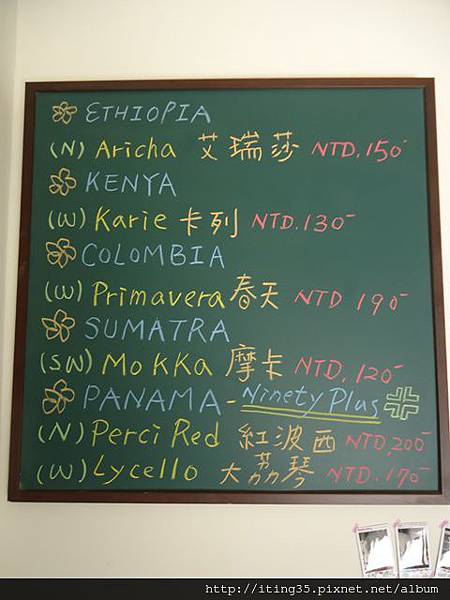 ETHIOPIA
(N) Aricha 艾瑞莎 NTD.150
KENYA
(W) Karie 卡列 NTD.130
COLOMBIA
(W) Primavera 春天 NTD 190
SUMATRA
(SW) Mokka 摩卡 NTD.120
PANAMA - Ninety Plus
(N) Perci Red 紅波西 NTD,200
(W) Lycello 大荔琴 NTD.170
http://iting35.pixnet.net/album